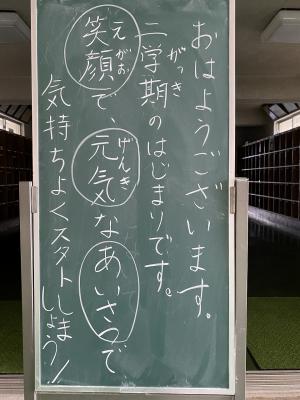 おはようございます。
二学期のはじまりです。
笑顔で、元気なあいさつで、
気持ちよくスタートしましょう!!
がっき
えがお
げんき